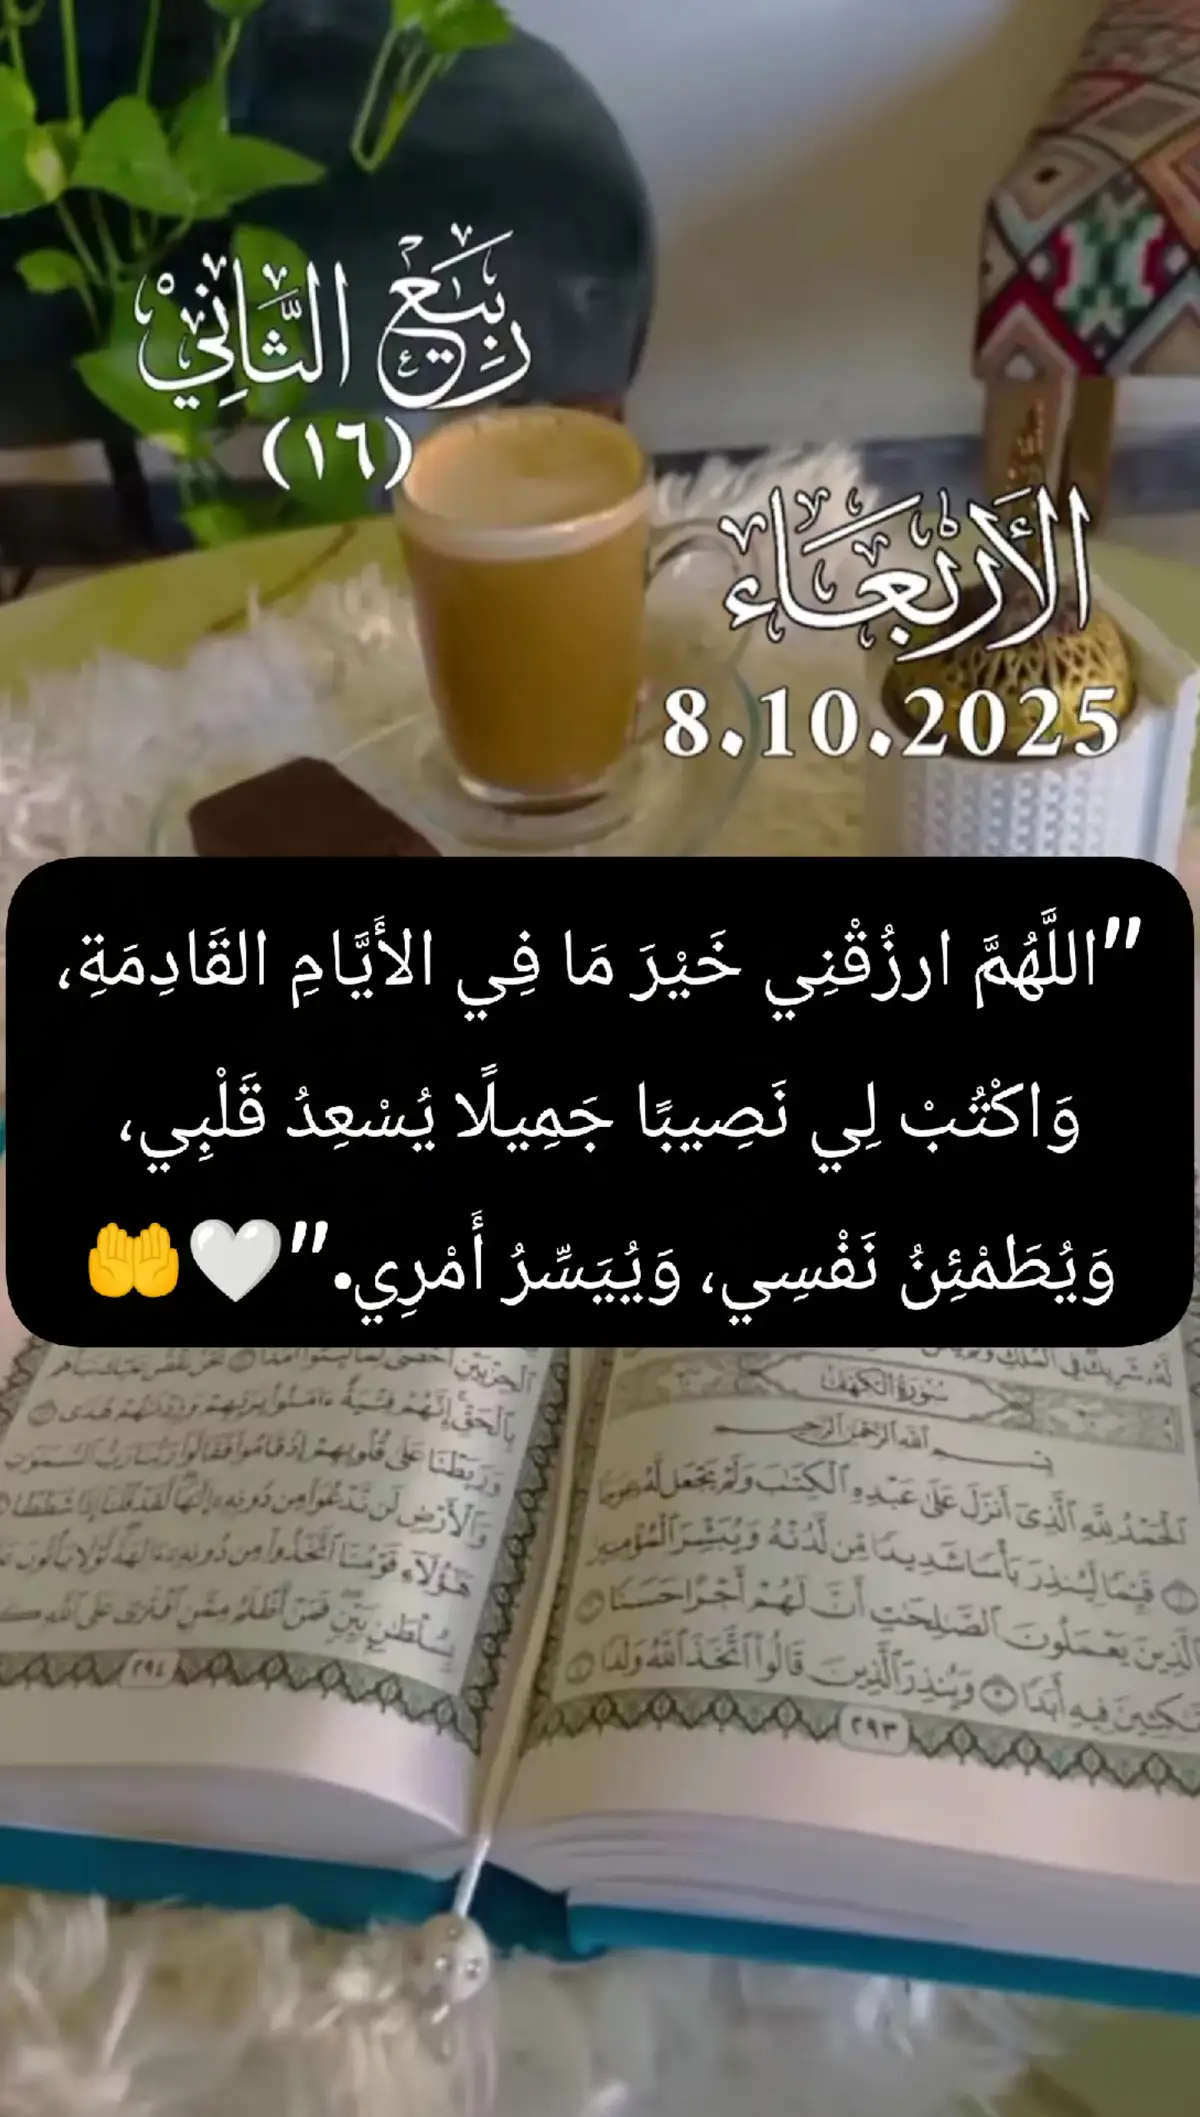 رَبِيْعِ الثَّانِيْ
(١٦)
الأَرْبِعَاء
8.10.2025
"اللَّهُمَّ ارزُقْنِي خَيْرَ مَا فِي الأَيَّامِ القَادِمَةِ،
وَاكْتُبْ لِي نَصِيبًا جَمِيلًا يُسْعِدُ قَلْبِي،
وَيُطَمْئِنُ نَفْسِي، وَيُيَسِّرُ أَمْرِي."🤍🤲
سُورَةُ الكَهْفِ
بِسْمِ ٱللَّهِ ٱلرَّحْمَٰنِ ٱلرَّحِيمِ
ٱلْحَمْدُ لِلَّهِ ٱلَّذِىٓ أَنزَلَ عَلَىٰ عَبْدِهِ ٱلْكِتَٰبَ وَلَمْ يَجْعَل لَّهُۥ عِوَجَا
قَيِّمًا لِّيُنذِرَ بَأْسًا شَدِيدًا مِّن لَّدُنْهُ وَيُبَشِّرَ ٱلْمُؤْمِنِينَ
ٱلَّذِينَ يَعْمَلُونَ ٱلصَّٰلِحَٰتِ أَنَّ لَهُمْ أَجْرًا حَسَنًا
مَّٰكِثِينَ فِيهِ أَبَدًا وَيُنذِرَ ٱلَّذِينَ قَالُوا۟ ٱتَّخَذَ ٱللَّهُ وَلَدًا
٢٩٣
بِٱلْحَقِّ إِنَّهُمْ فِتْيَةٌ ءَامَنُوا۟ بِرَبِّهِمْ وَزِدْنَٰهُمْ هُدًى
وَرَبَطْنَا عَلَىٰ قُلُوبِهِمْ إِذْ قَامُوا۟ فَقَالُوا۟ رَبُّنَا رَبُّ ٱلسَّمَٰوَٰتِ
وَٱلْأَرْضِ لَن نَّدْعُوَا۟ مِن دُونِهِۦٓ إِلَٰهًا لَّقَدْ قُلْنَآ إِذًا شَطَطًا
هَٰٓؤُلَآءِ قَوْمُنَا ٱتَّخَذُوا۟ مِن دُونِهِۦٓ ءَالِهَةً لَّوْلَا يَأْتُونَ
بِسُلْطَٰنٍ بَيِّنٍ فَمَنْ أَظْلَمُ مِمَّنِ ٱفْتَرَىٰ عَلَى ٱللَّهِ
٢٩٤